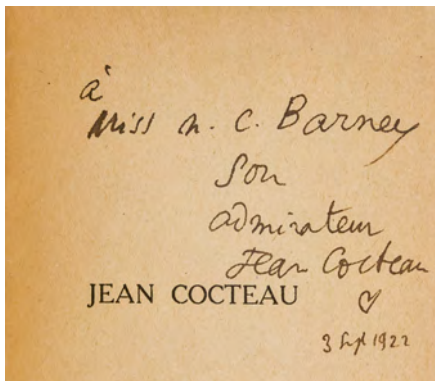 à
Miss n. C. Barney
Son
admirateur
Jean Cocteau
JEAN COCTEAU
3 Sept 1922